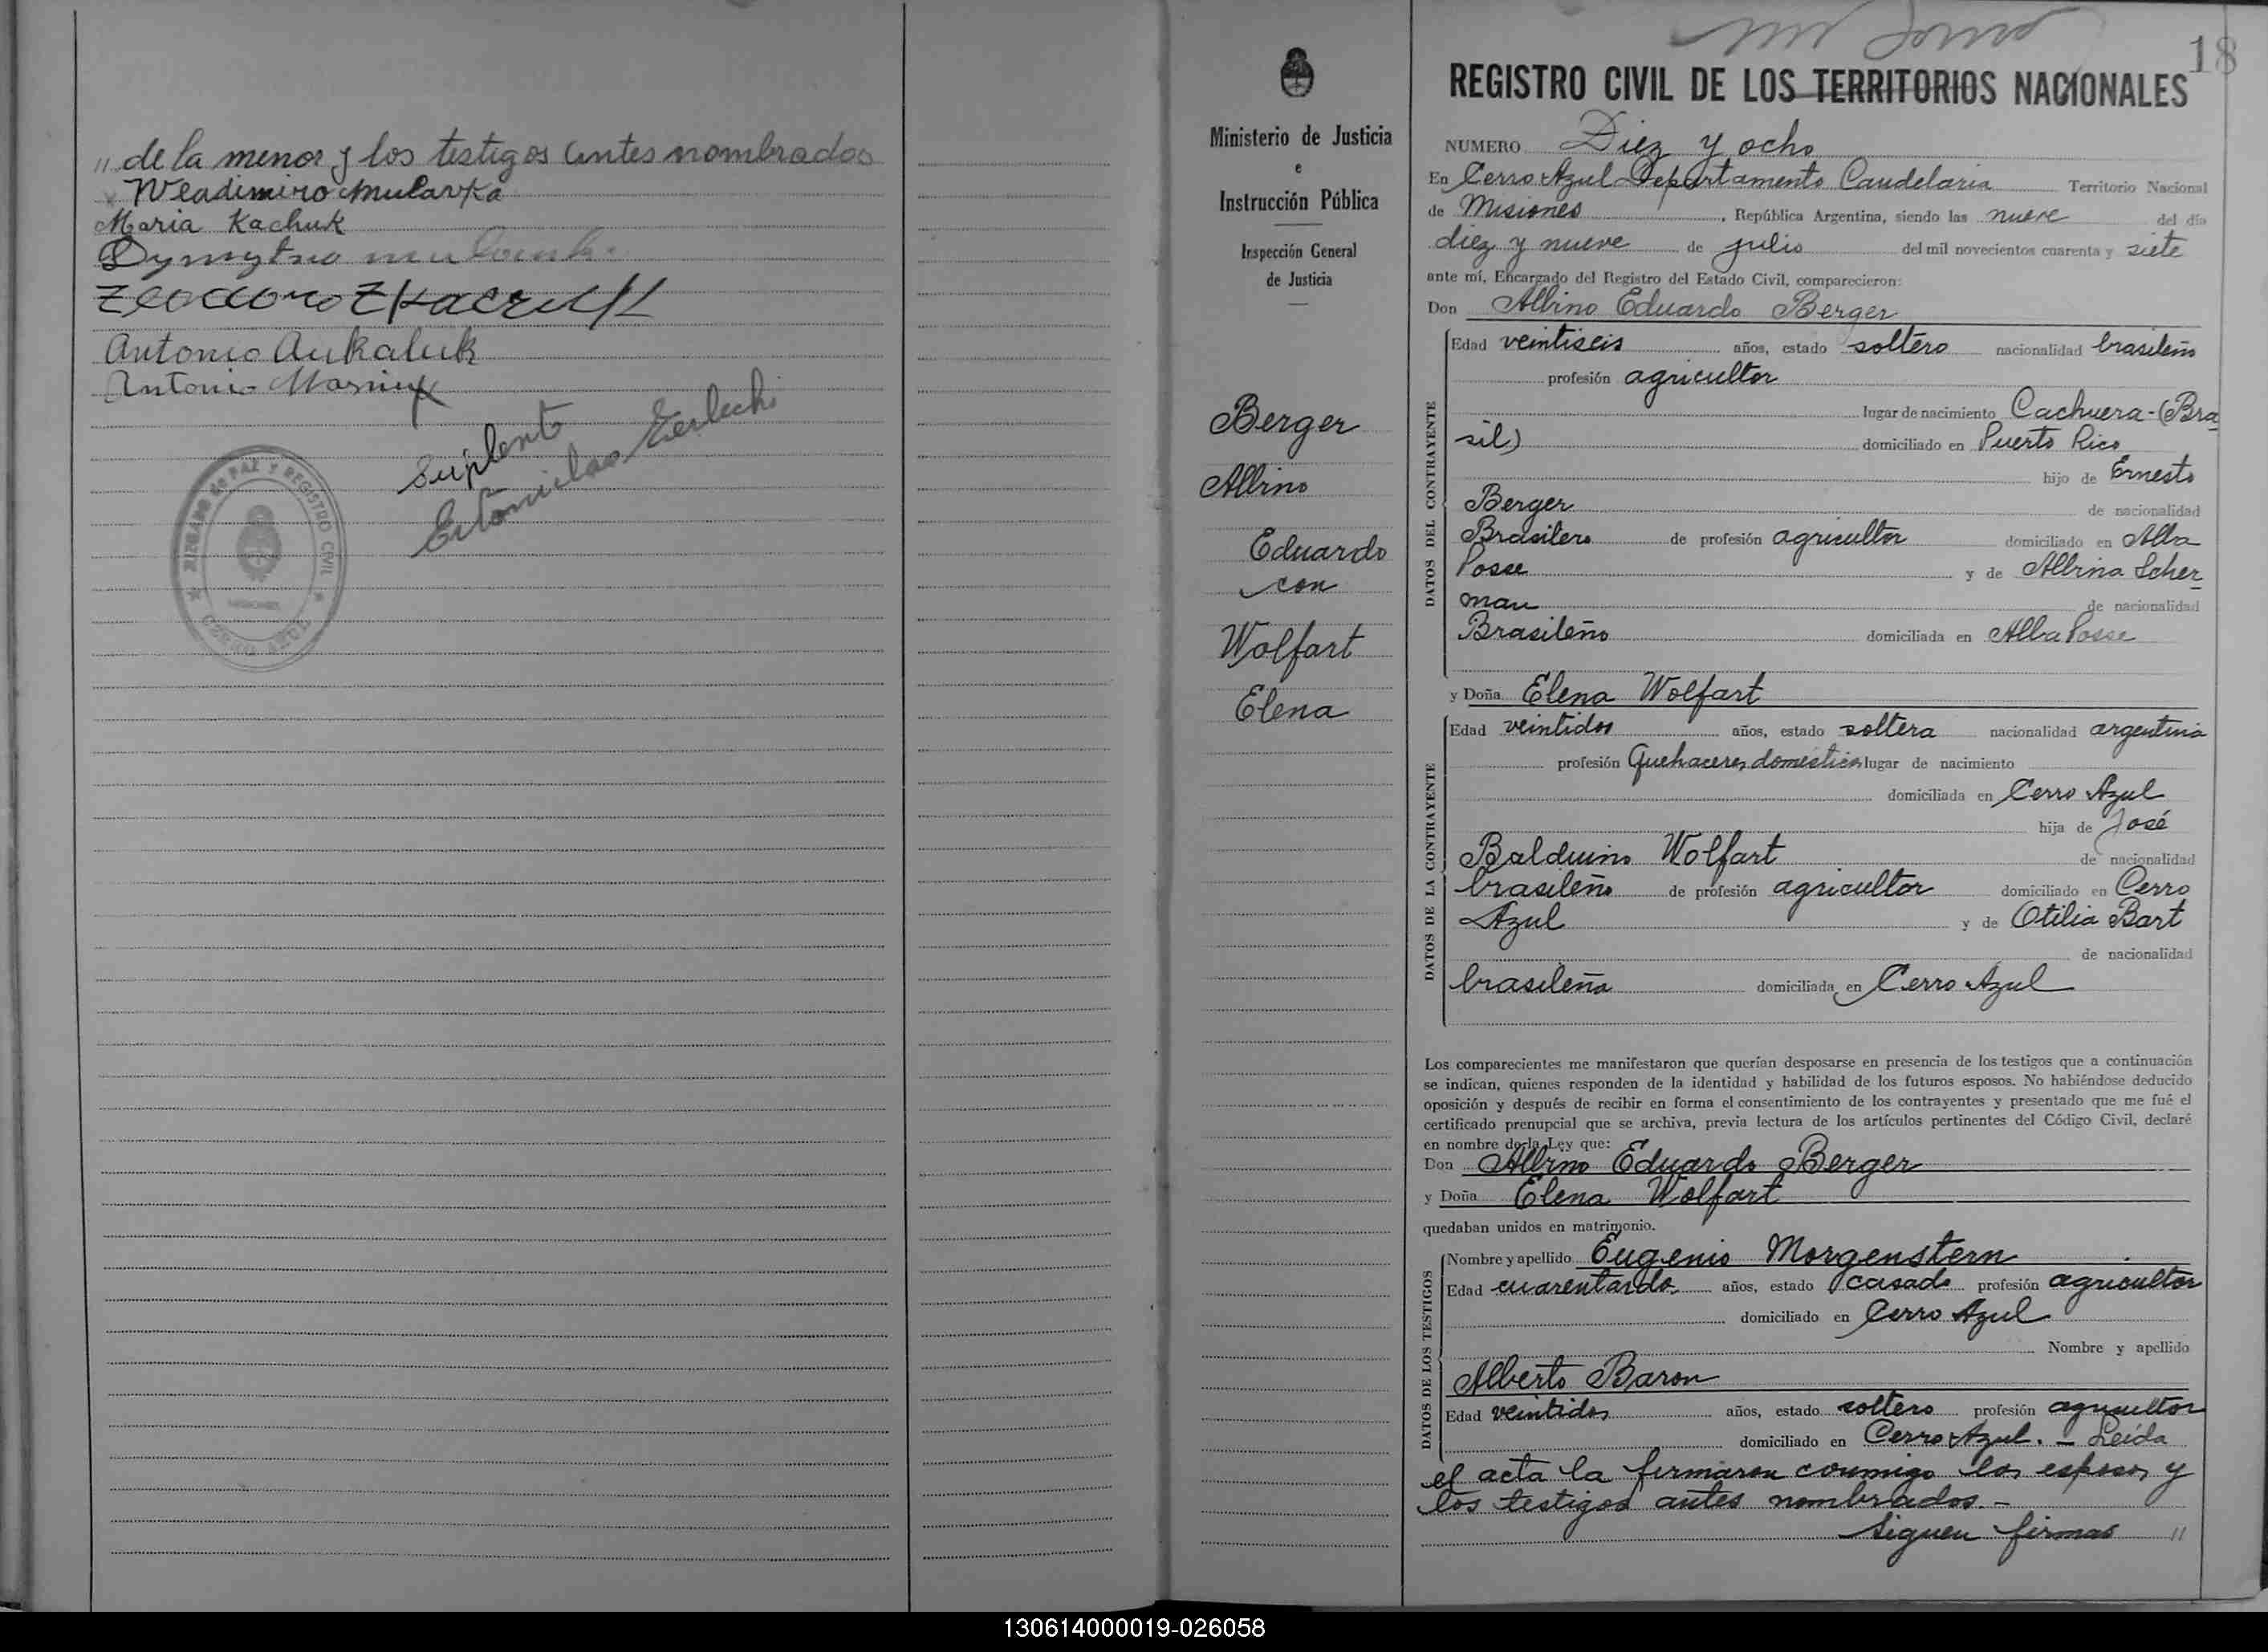 " de la menor y los testigos antes nombrados
Wladimiro Mularka
Maria Kachuk
Antonio Aukaluk
Antonio
Suplente
JUZGADO de PAZ Y REGISTRO CIVIL
CERRO AZUL
Ministerio de Justicia
e
Instrucción Pública
Inspección General
de Justicia
Berger
Albino
Eduardo
con
Wolfart
Elena
18
REGISTRO CIVIL DE LOS TERRITORIOS NACIONALES
NUMERO Diez y ocho
En Cerro Azul Departamento Candelaria Territorio Nacional
de Misiones, República Argentina, siendo las nueve del día
diez y nueve de julio del mil novecientos cuarenta y siete
ante mí, Encargado del Registro del Estado Civil, comparecieron:
Don Albino Eduardo Berger
DATOS DEL CONTRAYENTE
Edad veintiseis años, estado soltero nacionalidad brasileño
profesión agricultor
lugar de nacimiento Cachuera-(Bra
sil) domiciliado en Puerto Rico
hijo de Ernesto
Berger de nacionalidad
Brasilero de profesión agricultor domiciliado en Alba
Posse y de Albina Scher
man de nacionalidad
Brasileño domiciliada en Alba Posse
y Doña Elena Wolfart
DATOS DE LA CONTRAYENTE
Edad veintidos años, estado soltera nacionalidad argentina
profesión Quehaceres domesticos lugar de nacimiento
domiciliada en Cerro Azul
hija de José
Balduino Wolfart de nacionalidad
brasileño de profesión agricultor domiciliado en Cerro
Azul y de Otilia Bart
de nacionalidad
brasileña domiciliada en Cerro Azul
Los comparecientes me manifestaron que querían desposarse en presencia de los testigos que a continuación
se indican, quienes responden de la identidad y habilidad de los futuros esposos. No habiéndose deducido
oposición y después de recibir en forma el consentimiento de los contrayentes y presentado que me fué el
certificado prenupcial que se archiva, previa lectura de los artículos pertinentes del Código Civil, declaré
en nombre de la Ley que:
Don Albino Eduardo Berger
y Doña Elena Wolfart
quedaban unidos en matrimonio.
DATOS DE LOS TESTIGOS
Nombre y apellido Eugenio Morgenstern
Edad cuarentaidos años, estado casado profesión agricultor
domiciliado en Cerro Azul
Nombre y apellido
Alberto Baron
Edad veintidos años, estado soltero profesión agricultor
domiciliado en Cerro Azul. - Leida
el acta la firmaron conmigo los esposos y
los testigos antes nombrados.-
Siguen firmas "
130614000019-026058